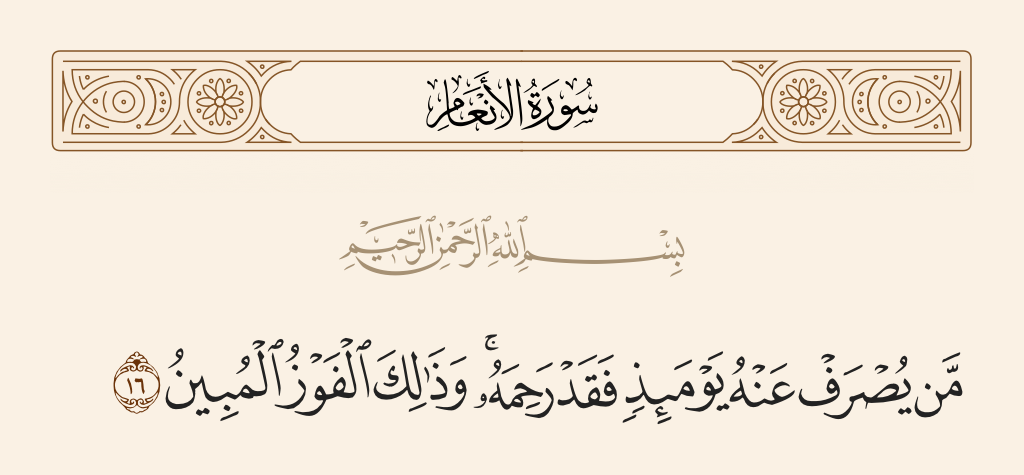 سُورَةُ الأَنْعَامِ
بِسْمِ ٱللَّهِ ٱلرَّحْمَٰنِ ٱلرَّحِيمِ
مَّن يُصْرَفْ عَنْهُ يَوْمَئِذٍ فَقَدْ رَحِمَهُۥ ۚ وَذَٰلِكَ ٱلْفَوْزُ ٱلْمُبِينُ ١٦